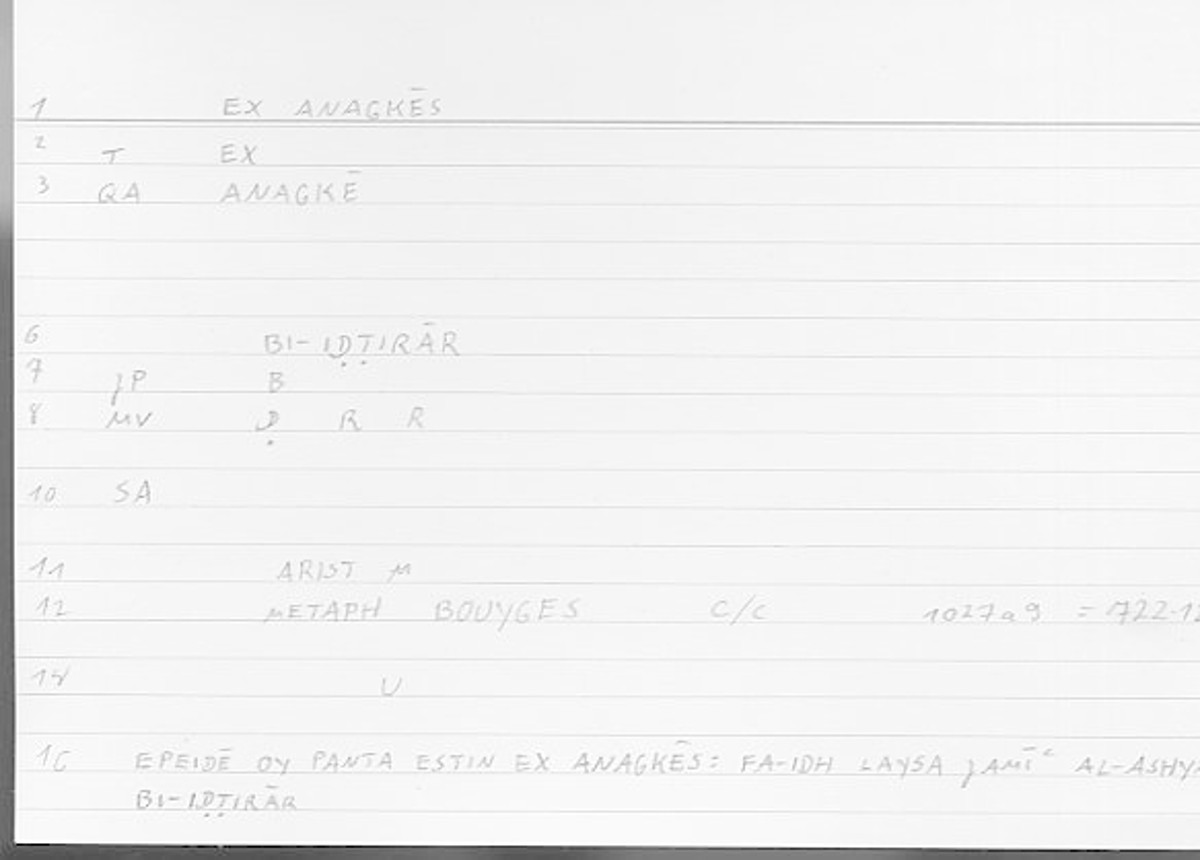 1 EX ANAGKĒS
2 T EX
3 QA ANAGKĒ
6 BI-IḌṬIRĀR
7 JP B
8 MV Ḍ R R
10 SA
11 ARIST M
12 METAPH BOUYGES C/C 1027a9 = 722.12
14 U
16 EPEIDĒ OY PANTA ESTIN EX ANAGKĒS: FA-IDH LAYSA JAMĪʿ AL-ASHY
BI-IḌṬIRĀR